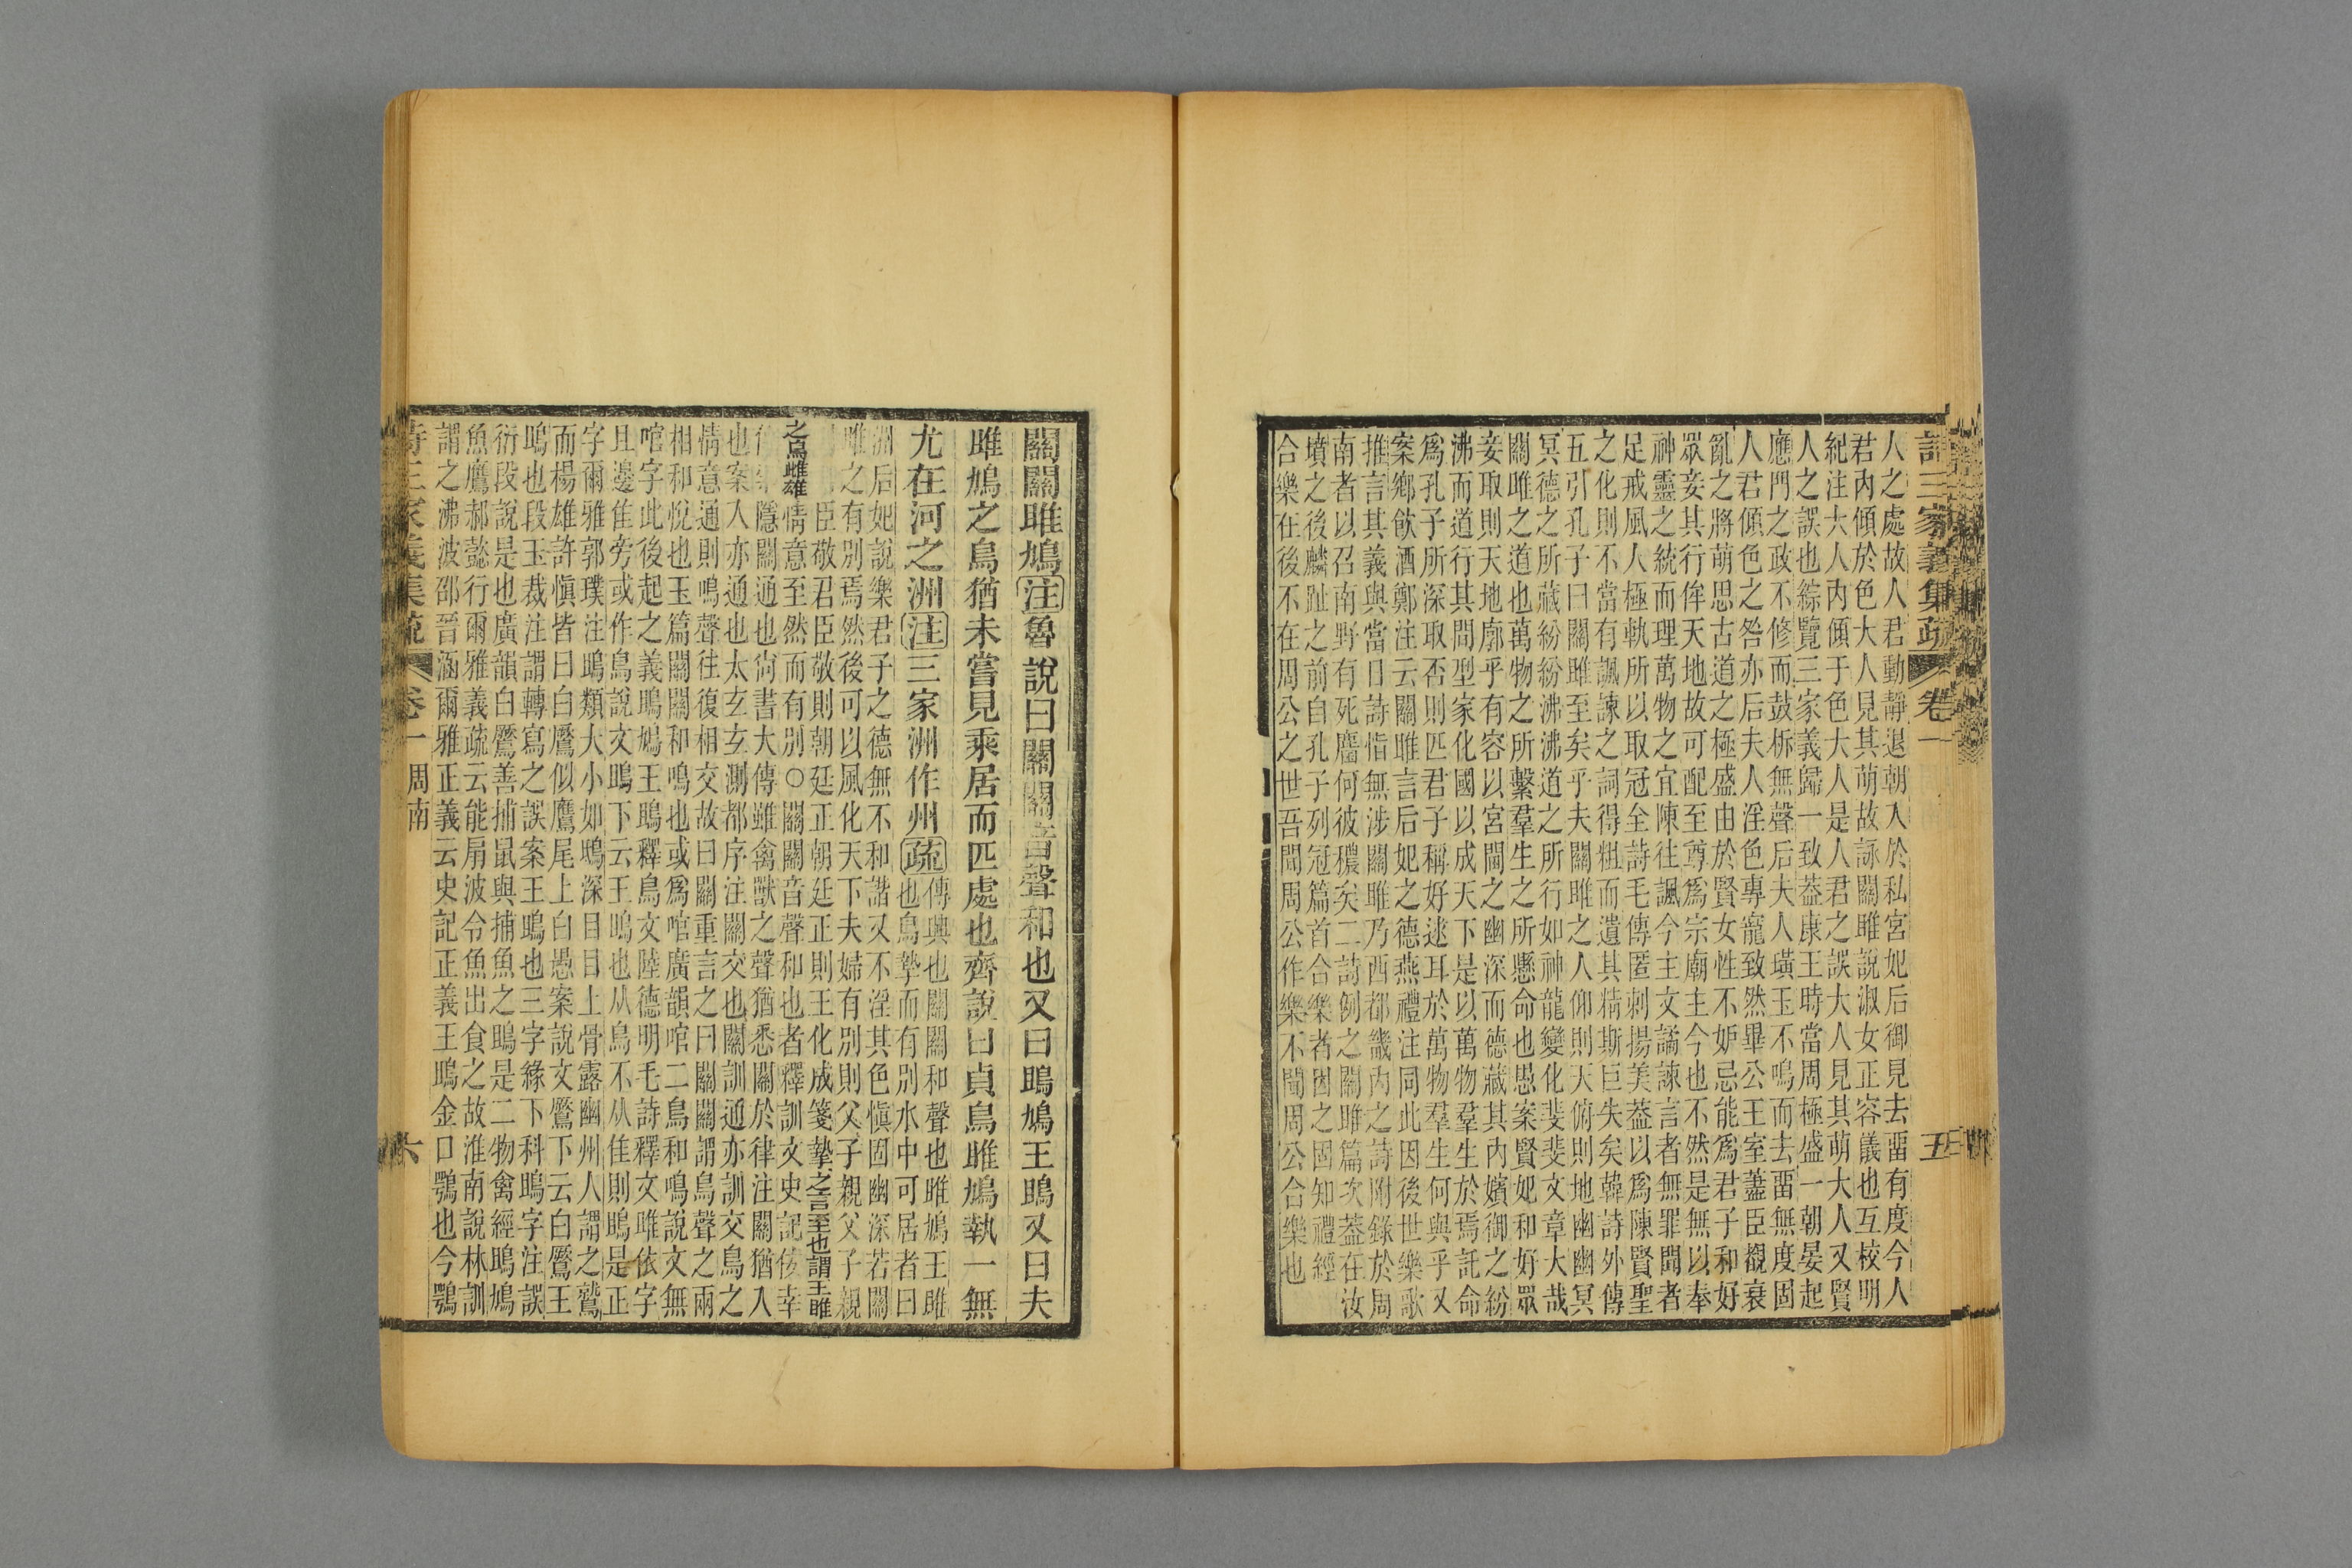 詩三家義集疏 卷一 五
人之處故人君動靜退朝入於私宮妃后御見去畱有度今人
君內傾於色大人見其萌故詠關雎說淑女正容儀也互校明
紀注大人內傾于色大人是人君之誤大人見其萌大人又賢
人之誤也綜覽三家義歸一致葢康王時當周極盛一朝晏起
應門之政不修而鼓柝無聲后夫人璜玉不鳴而去畱無度固
人君傾色之咎亦后夫人淫色專寵致然畢公王室藎臣覩衰
亂之將萌思古道之極盛由於賢女性不妒忌能爲君子和好
眾妾其行侔天地故可配至尊爲宗廟主今也不然是無以奉
神靈之統而理萬物之宜陳往諷今主文譎諫言者無罪聞者
足戒風人極執所以取冠全詩毛傳匿刺揚美葢以爲陳賢聖
之化則不當有諷諫之詞得粗而遺其精斯巨失矣韓詩外傳
五引孔子曰關雎至矣乎夫關雎之人仰則天俯則地幽幽冥
冥德之所藏紛紛沸沸道之所行如神龍變化斐斐文章大哉
關雎之道也萬物之所繫羣生之所懸命也愚案賢妃和好眾
妾取則天地廓乎有容以宮閫之幽深而德藏其內嬪御之紛
沸而道行其間型家化國以成天下是以萬物羣生於焉託命
爲孔子所深取否則匹君子稱好逑耳於萬物羣生何與乎又
案鄉飮酒鄭注云關雎言后妃之德燕禮注同此因後世樂歌
推言其義與當日詩恉無涉關雎乃西都畿內之詩附錄於周
南者以召南野有死麕何彼穠矣二詩例之關雎篇次葢在汝
墳之後麟趾之前自孔子列冠篇首合樂者因之固知禮經
合樂在後不在周公之世吾聞周公作樂不聞周公合樂也
關關雎鳩注魯說曰關關音聲和也又曰鴡鳩王鴡又曰夫
雎鳩之鳥猶未嘗見乘居而匹處也齊說曰貞鳥雎鳩執一無
尤在河之洲注三家洲作州疏傳興也關關和聲也雎鳩王雎
也鳥摯而有別水中可居者曰
洲后妃說樂君子之德無不和諧又不淫其色愼固幽深若關
雎之有別焉然後可以風化天下夫婦有別則父子親父子親
臣敬君臣敬則朝廷正朝廷正則王化成箋摯之言至也謂王雎
之鳥雌雄情意至然而有別○關關音聲和也者釋訓文史記佞幸
隱關通也尙書大傳雖禽獸之聲猶悉關於律注關猶入
也案入亦通也太玄玄測都序注關交也關訓通亦訓交鳥之
情意通則鳴聲往復相交故曰關重言之曰關關謂鳥聲之兩
相和悅也玉篇關關和鳴也或爲喧廣韻喧二鳥和鳴說文無
喧字此後起之義鴡鳩王鴡釋鳥文陸德明毛詩釋文雎依字
且邊隹旁或作鳥說文鴡下云王鴡也从鳥不从隹則鴡是正
字爾雅郭璞注鴡類大小如鴟深目目上骨露幽州人謂之鷲
而楊雄許愼皆曰白鷢似鷹尾上白愚案說文鷢下云白鷢王
鴡也段玉裁注謂轉寫之誤案王鴡也三字緣下科鴡字注誤
衍段說是也廣韻白鷢善捕鼠與捕魚之鴡是二物禽經鴡鳩
魚鷹郝懿行爾雅義疏云能扇波令魚出食之故淮南說林訓
謂之沸波邵晉涵爾雅正義云史記正義王鴡金口鶚也今鶚
詩三家義集疏 卷一 周南 六